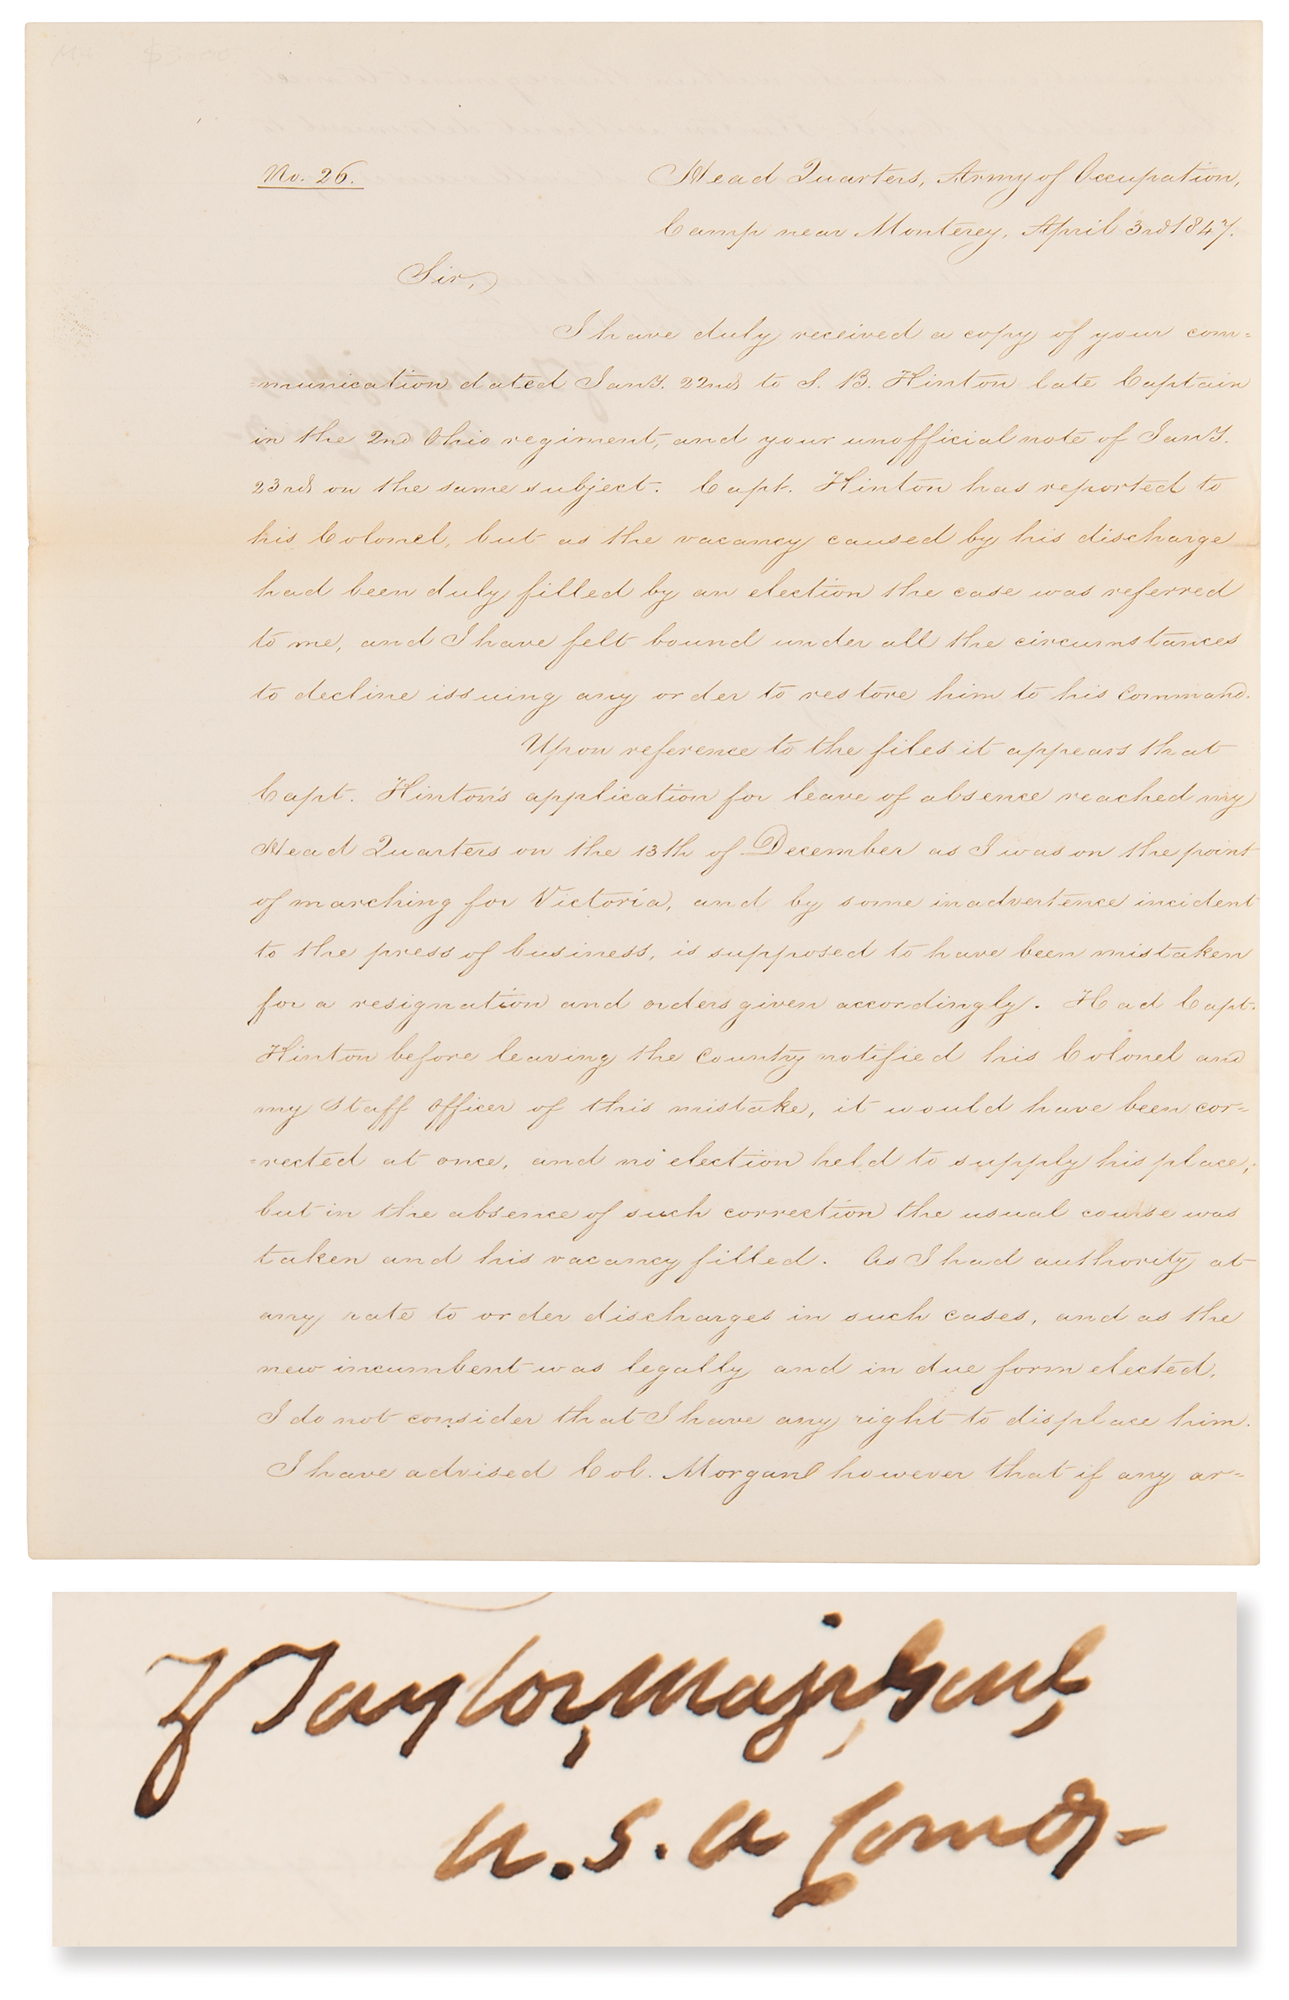 No. 26.
Head Quarters, Army of Occupation,
Camp near Monterey, April 3rd 1847.
Sir,
I have duly received a copy of your com=
=munication dated Jany. 22nd to S. B. Hinton late Captain
in the 2nd Ohio regiment, and your unofficial note of Jany.
23rd on the same subject. Capt. Hinton has reported to
his Colonel, but as the vacancy caused by his discharge
had been duly filled by an election the case was referred
to me, and I have felt bound under all the circumstances
to decline issuing any order to restore him to his command.
Upon reference to the files it appears that
Capt. Hinton's application for leave of absence reached my
Head Quarters on the 13th of December as I was on the point
of marching for Victoria, and by some inadvertence incident
to the press of business, is supposed to have been mistaken
for a resignation and orders given accordingly. Had Capt.
Hinton before leaving the country notified his Colonel and
my Staff Officer of this mistake, it would have been cor=
=rected at once, and no election held to supply his place;
but in the absence of such correction the usual course was
taken and his vacancy filled. As I had authority at
any rate to order discharges in such cases, and as the
new incumbent was legally and in due form elected,
I do not consider that I have any right to displace him.
I have advised Col. Morgan however that if any ar=
Z Taylor, Majr, Genl,
U.S.A Comdg-